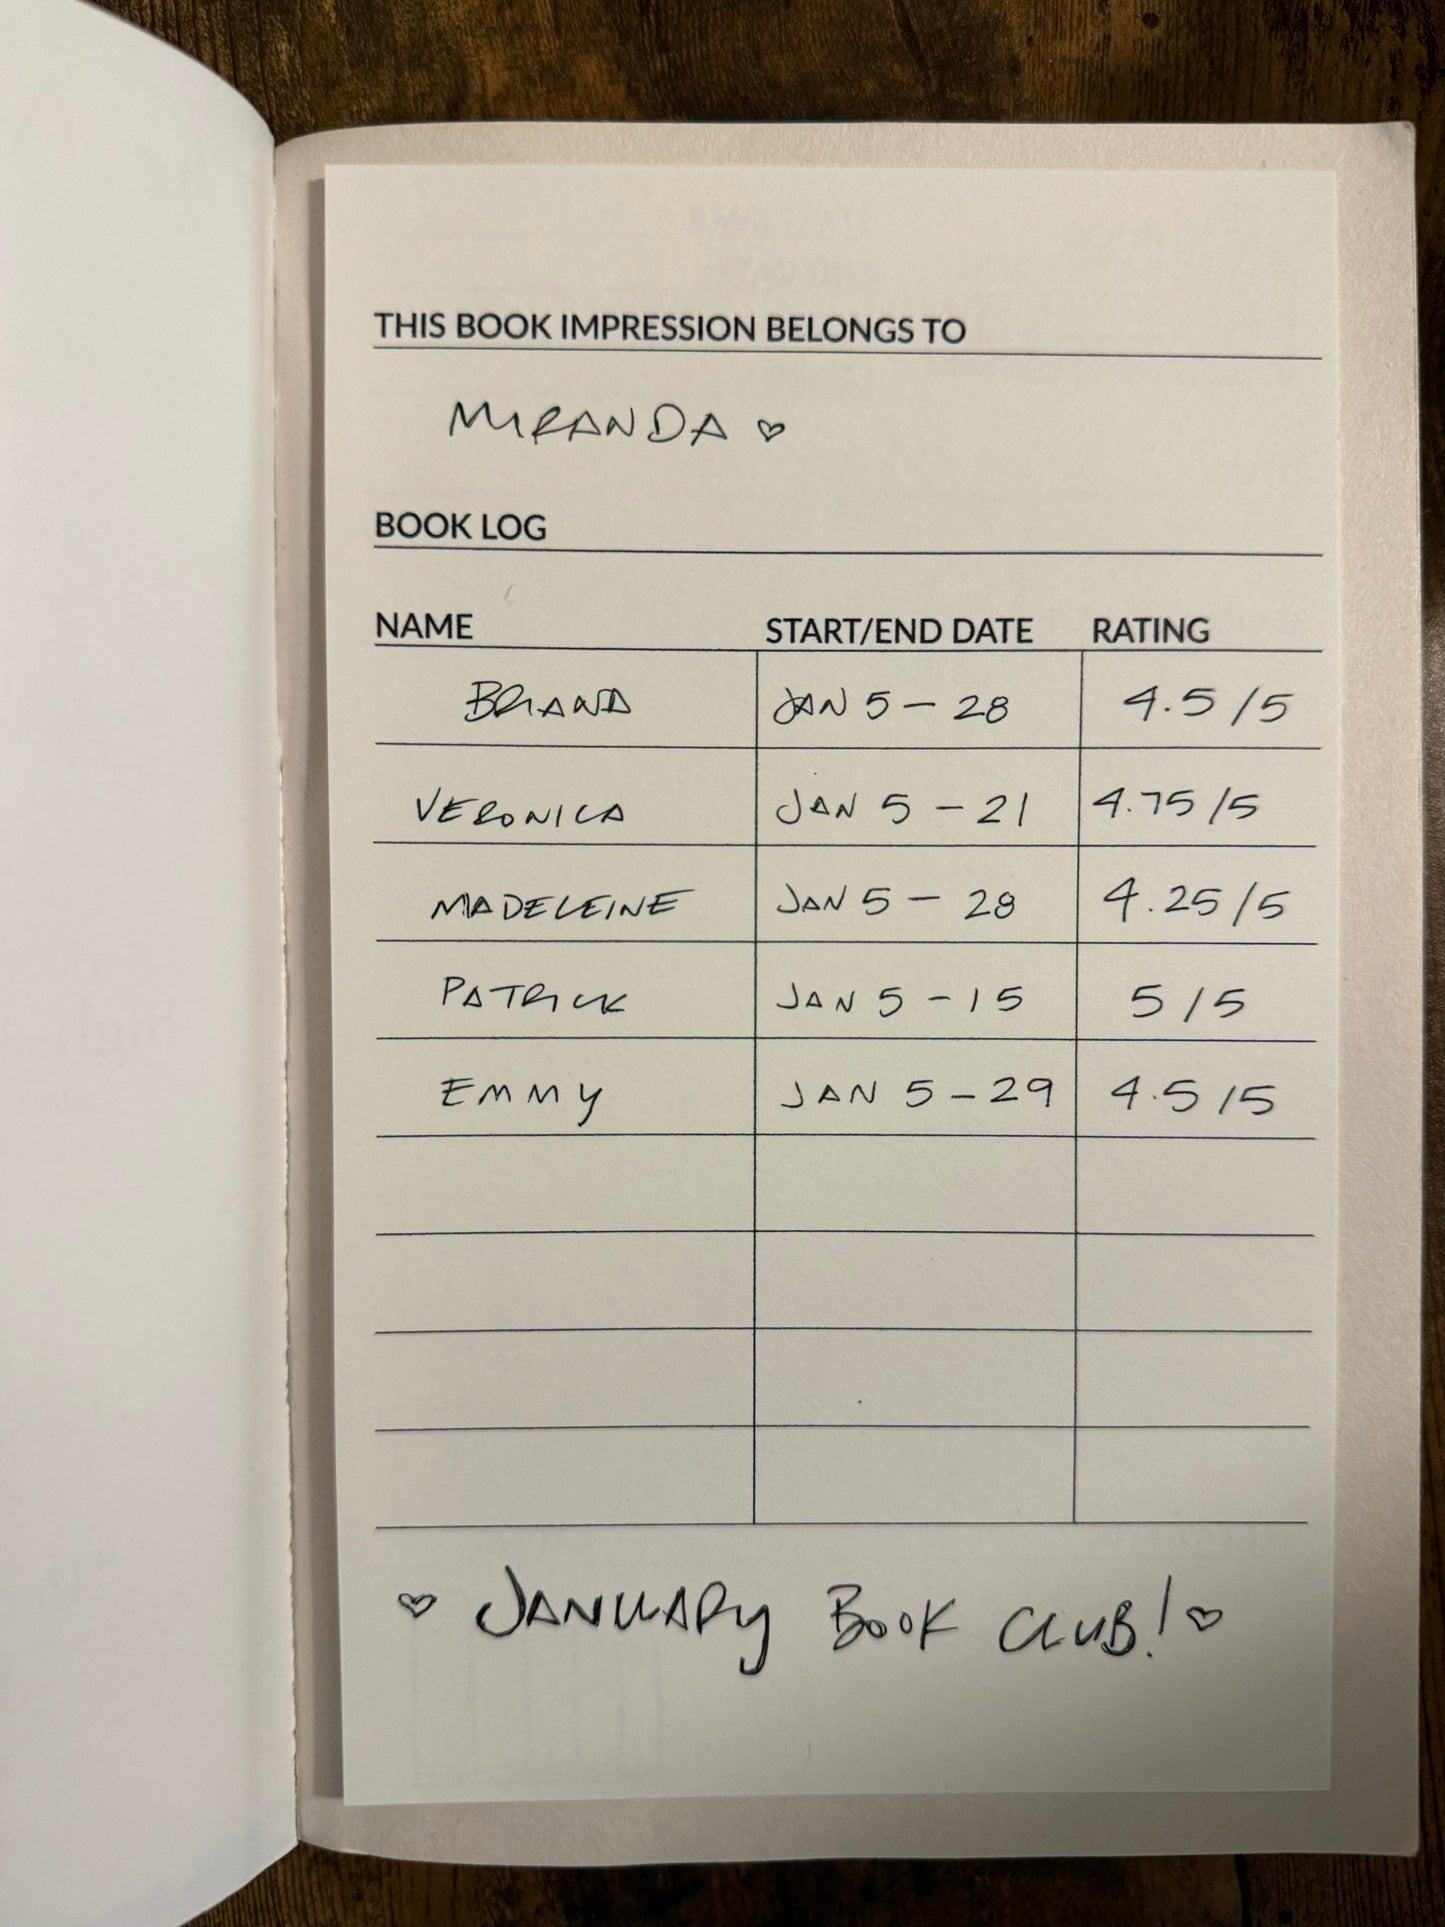 THIS BOOK IMPRESSION BELONGS TO
MIRANDA ♡
BOOK LOG
NAME START/END DATE RATING
BRIANA JAN 5 - 28 4.5/5
VERONICA JAN 5 - 21 4.75/5
MADELEINE JAN 5 - 28 4.25/5
PATRICK JAN 5 - 15 5/5
EMMY JAN 5 - 29 4.5/5
♡ JANUARY BOOK CLUB! ♡